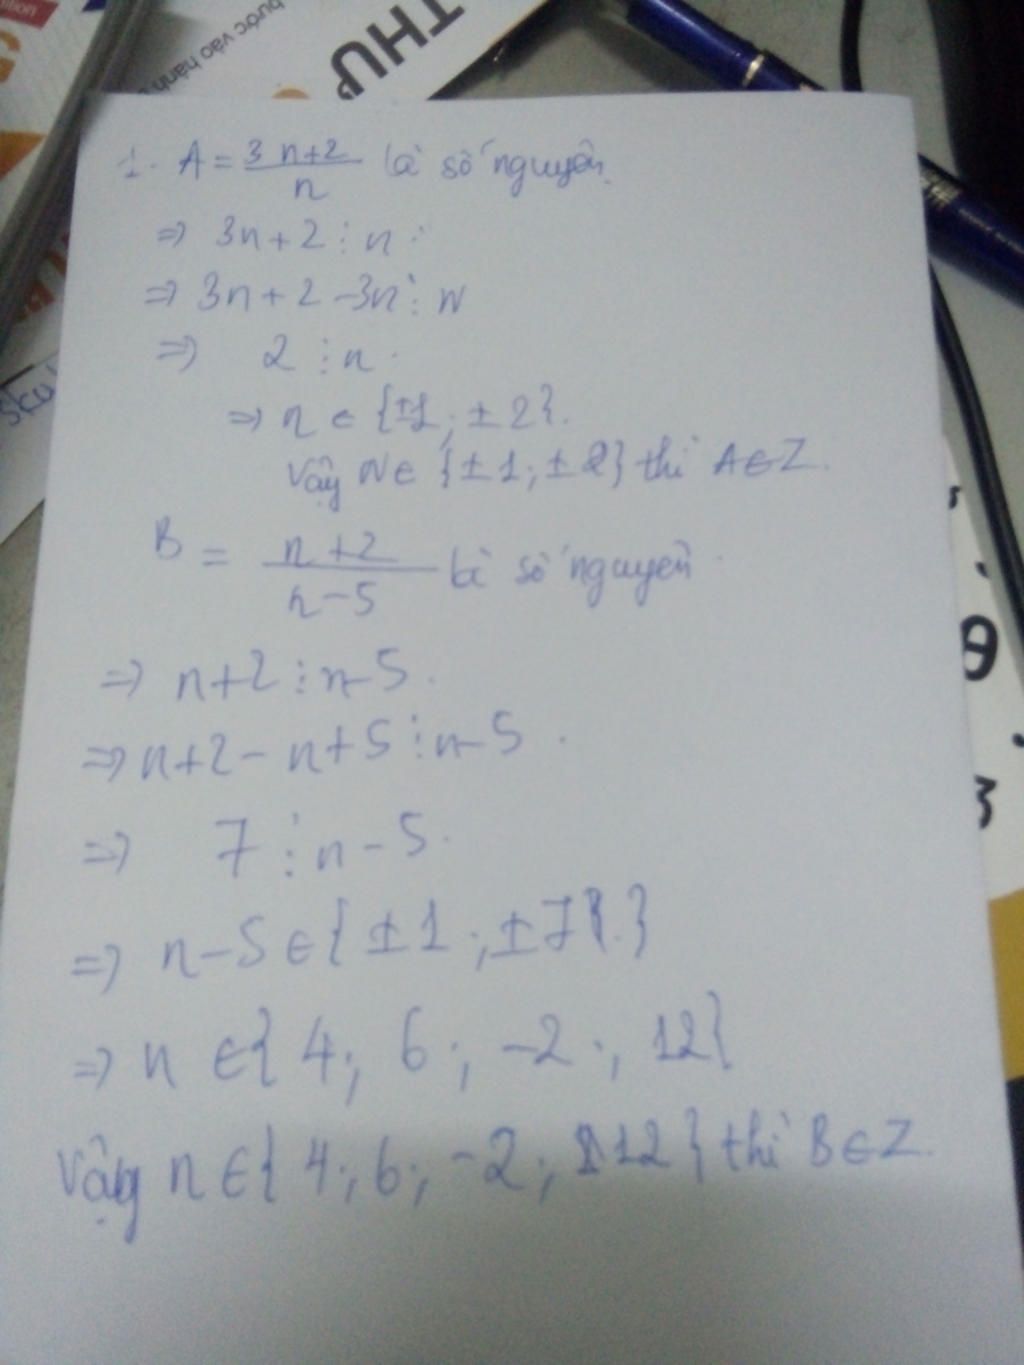 ition
bước vào hành
THƯ
1. A = \frac{3n+2}{n} là số nguyên.
=> 3n+2 ⋮ n.
=> 3n+2-3n ⋮ N
=> 2 ⋮ n.
=> n ∈ {±1; ±2}.
Vậy N ∈ {±1; ±2} thì A∈Z.
B = \frac{n+2}{n-5} là số nguyên.
=> n+2 ⋮ n-5.
=> n+2-n+5 ⋮ n-5.
=> 7 ⋮ n-5.
=> n-5 ∈ {±1; ±7}
=> n ∈ {4; 6; -2; 12}
Vậy n ∈ {4; 6; -2; 12} thì B∈Z.
θ
3